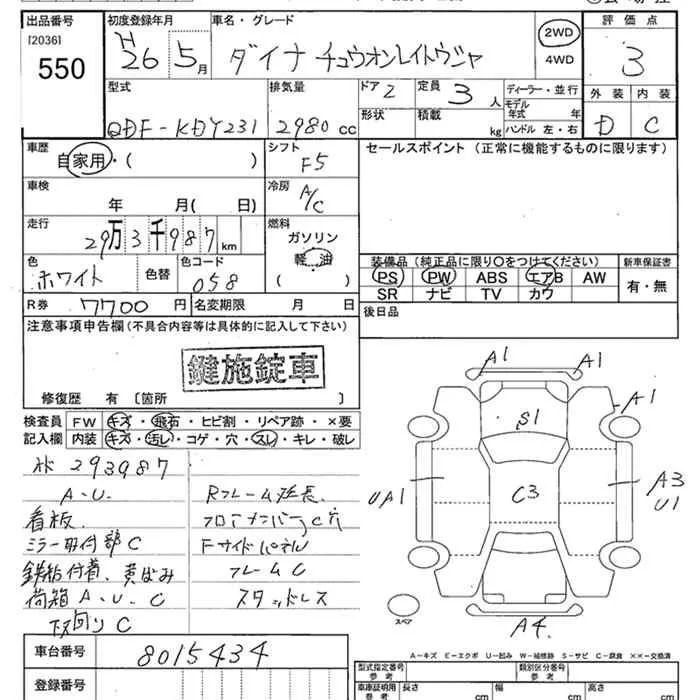 出品番号 初度登録年月 車名・グレード 評価点
[2036]
550
H26 5月 ダイナ チュウオンレイトウジャ 2WD 4WD 3
型式 排気量 ドア 2 定員 3 人 ディーラー・並行 外装 内装
モデル年式 年
形状 積載 kg ハンドル 左・右
QDF-KDY231 2980 cc D C
車歴 シフト セールスポイント (正常に機能するものに限ります)
自家用・( ) F5
車検 冷房
年 月( 日) A/C
走行 燃料
29万3千987 km ガソリン
軽油
( )
色 色替 色コード
ホワイト 058
装備品(純正品に限り○をつけてください) 新車保証書
PS PW ABS エアB AW 有・無
SR ナビ TV カワ
R券 7700 円 名変期限 月 日 後日品
注意事項申告欄(不具合内容等は具体的に記入して下さい)
鍵施錠車
修復歴 有 〔箇所 〕
検査員 FW キズ・飛石・ヒビ割・リペア跡・×要
記入欄 内装 キズ・汚レ・コゲ・穴・スレ・キレ・破レ
A1 A1
A1
S1
UA1 C3 A3
U1
A4
スペア
293987
A・U・ Rフレーム延長
看板 フロアメンバーC穴
ミラー取付部C Fサイドパネル
鉄粉付着、黄ばみ フレームC
荷箱A・U・C スタッドレス
下回りC
A-キズ E-エクボ U-凹み W-補修跡 S-サビ C-腐食 ××-交換済
車台番号 8015434
登録番号
型式指定番号 参考 類別区分番号 参考
車庫証明用 参考 長さ cm 幅 cm 高さ cm